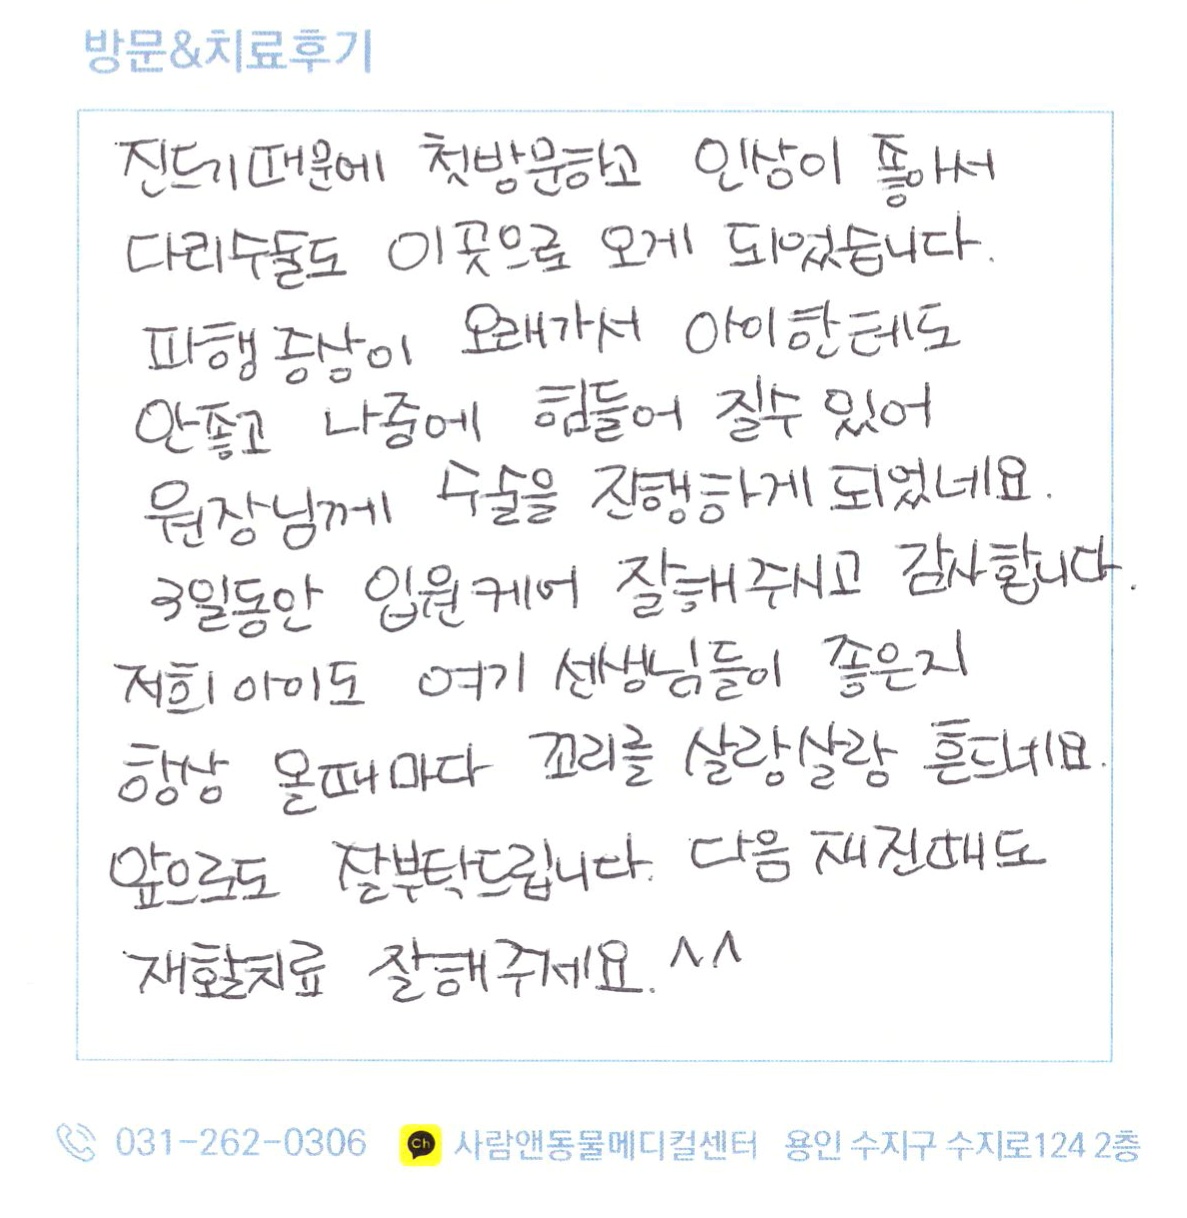 방문&치료후기
진드기때문에 첫방문하고 인상이 좋아서
다리수술도 이곳으로 오게 되었습니다.
파행증상이 오래가서 아이한테도
안좋고 나중에 힘들어 질수 있어
원장님께 수술을 진행하게 되었네요.
3일동안 입원케어 잘해주시고 감사합니다.
저희아이도 여기 선생님들이 좋은지
항상 올때마다 꼬리를 살랑살랑 흔드네요.
앞으로도 잘부탁드립니다. 다음 재진때도
재활치료 잘해주세요. ^^
031-262-0306 Ch 사람앤동물메디컬센터 용인 수지구 수지로124 2층